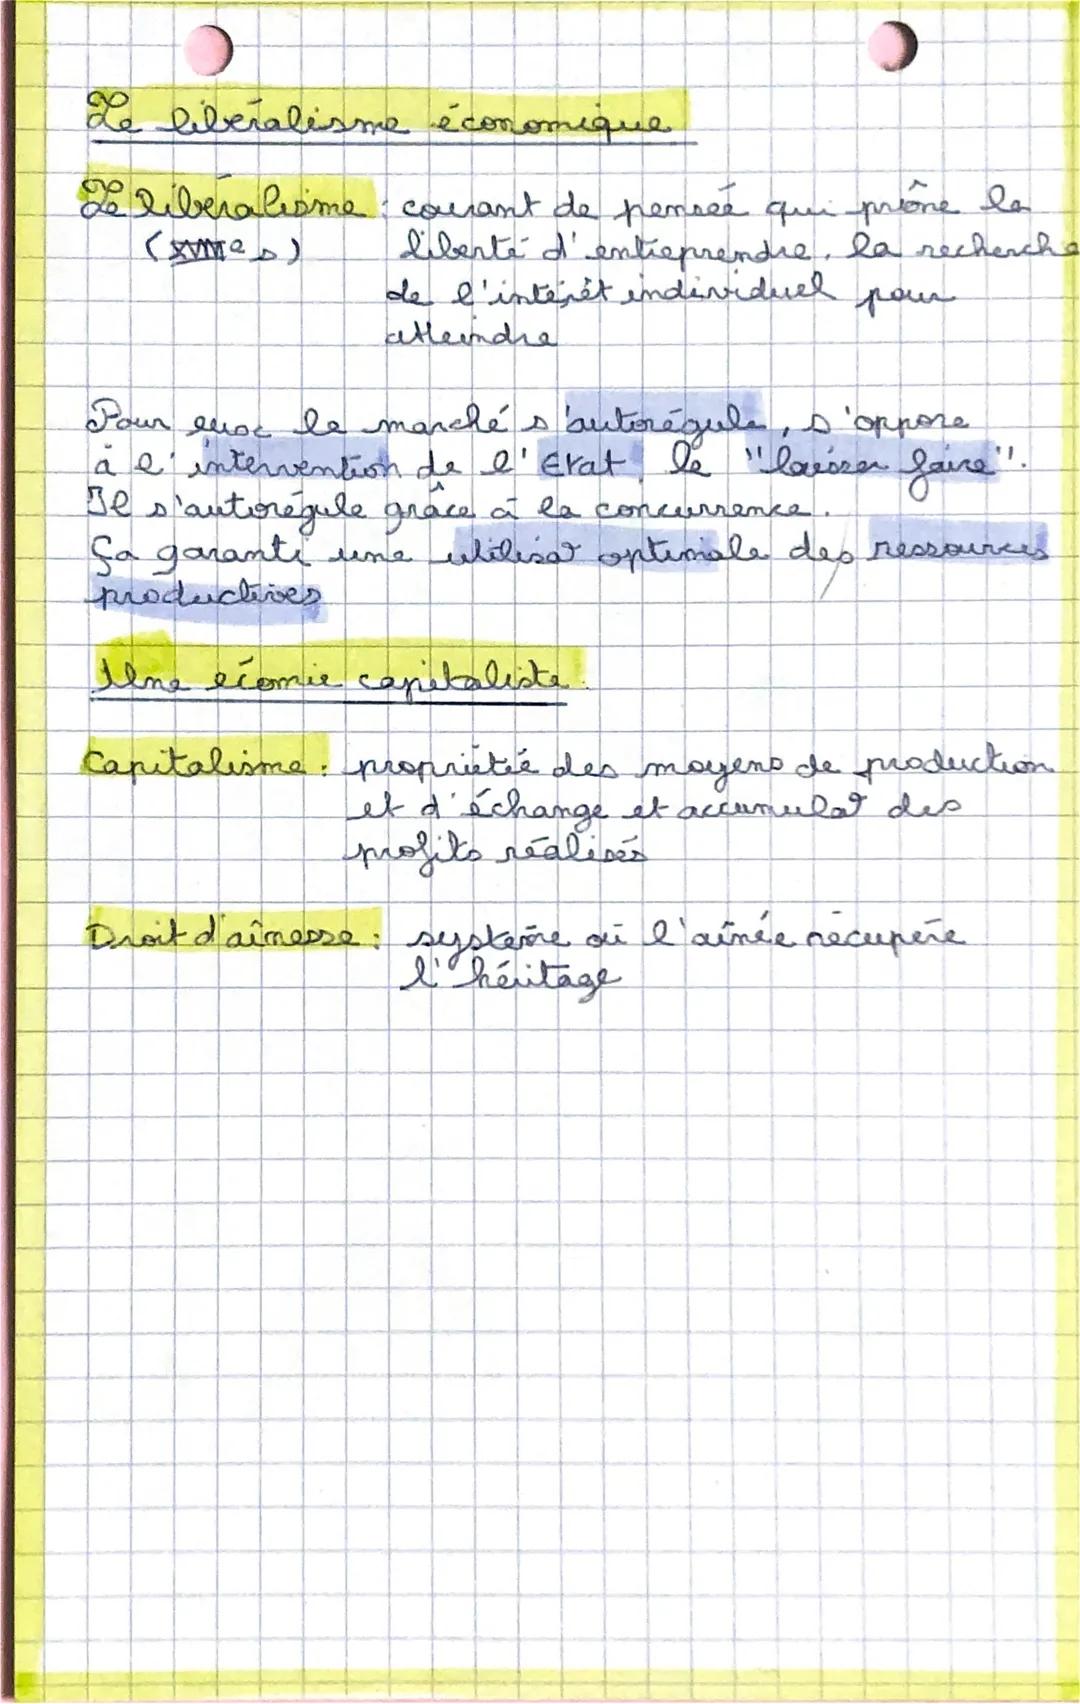 Le libéralisme économique
Le libéralisme : courant de pensée qui prône la
(XVIIIe s) liberté d'entreprendre, la recherche
de l'intérêt individuel pour
atteindre
Pour eux le marché s'autorégule, s'oppose
à l'intervention de l'Etat, le "laisser faire".
Il s'autorégule grâce à la concurrence.
Ça garanti une utilisat° optimale des ressources
productives
Une écomie capitaliste.
Capitalisme : propriétié des moyens de production
et d'échange et accumulat° des
profits réalisés
Droit d'aînesse : système où l'aînée récupère
l'héritage